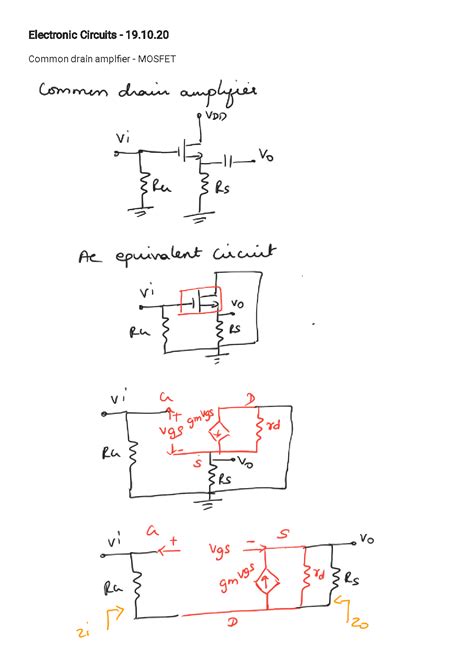 Electronic Circuits - 19.10.20
Common drain amplfier - MOSFET
Common drain amplifier
VDD
Vi
Vo
RG
Rs
AC equivalent circuit
Vi
Vo
RG
Rs
Vi
G
D
+
vgs
gmvgs
rd
-
S
Vo
RG
Rs
Vi
G
+
vgs
-
S
Vo
gmvgs
rd
Rs
RG
D
Zi
Zo